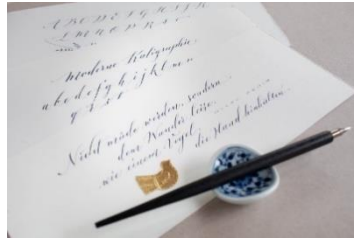 A B C D E F G H I J K
L M N O P Q R S T
Moderne Kalligraphie
a b c d e f g h i j k l m n
q r s t
Nicht müde werden, sondern
dem Wunder leise,
wie einem Vogel, die Hand hinhalten.